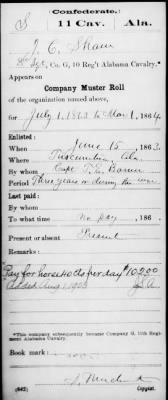 Confederate.
S 11 Cav. Ala.
J. C. Shaw
Sgt, Co. G, 10 Reg't Alabama Cavalry.*
Appears on
Company Muster Roll
of the organization named above,
for July 1, 1863 to Mar 1, 1864.
Enlisted:
When June 15, 1863.
Where Tuscumbia, Ala.
By whom Capt
Period Three years or during the war
Last paid:
By whom
To what time no pay, 186 .
Present or absent Present
Remarks:
Pay for horse 40 cts per day $102.00
*This company subsequently became Company G, 11th Regiment Alabama Cavalry.
Book mark:
(642) Copyist.